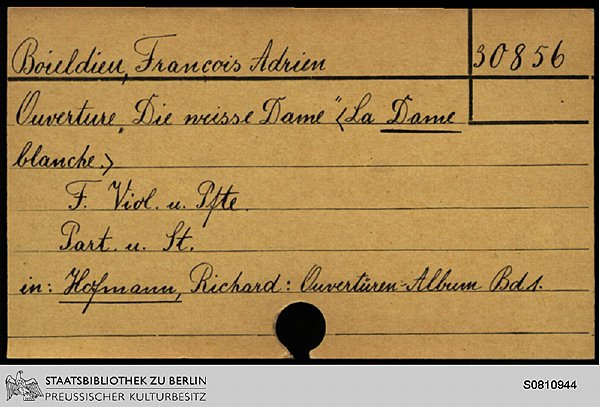 Boieldieu, François Adrien
30856
Ouverture „Die weisse Dame" <La Dame
blanche.>
F. Viol. u. Pfte.
Part. u. St.
in: Hofmann, Richard: Ouvertüren-Album Bd 1.
STAATSBIBLIOTHEK ZU BERLIN
PREUSSISCHER KULTURBESITZ
S0810944